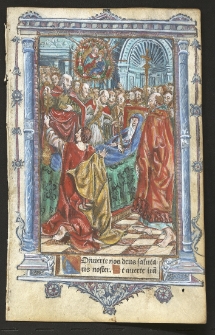 Onuerte nos deus saluta-
ris noster. Et auerte irā